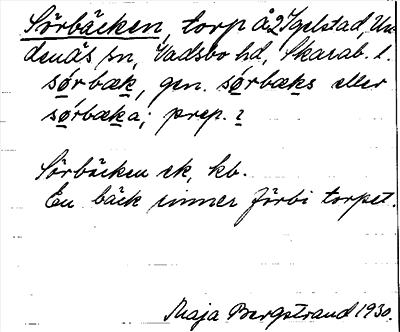 Sörbäcken, torp å 2 Igelstad, Un-
denäs sn, Vadsbo hd, Skarab. l.
sørbæk, gen. sørbæks eller
sørbæka; prep. i
Sörbäcken ek, kb.
En bäck rinner förbi torpet.
Maja Bergstrand 1930.